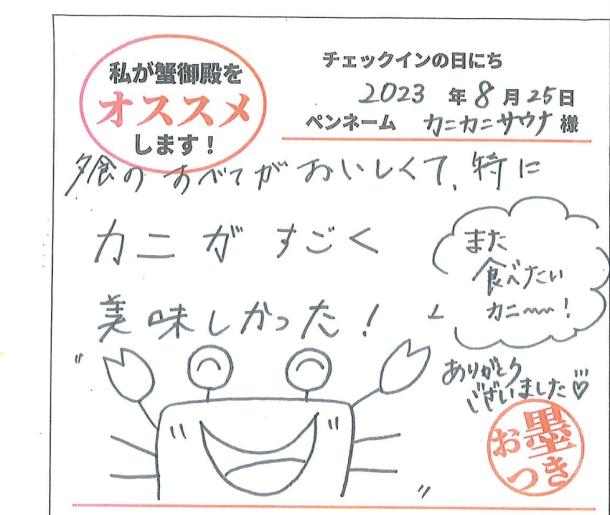 私が蟹御殿を
オススメ
します！
チェックインの日にち
2023 年 8 月 25 日
ペンネーム カニカニサウナ 様
夕食のすべてがおいしくて、特に
カニがすごく
美味しかった！
また
食べたい
カニ〜〜！
ありがとう
ございました♡
お墨つき